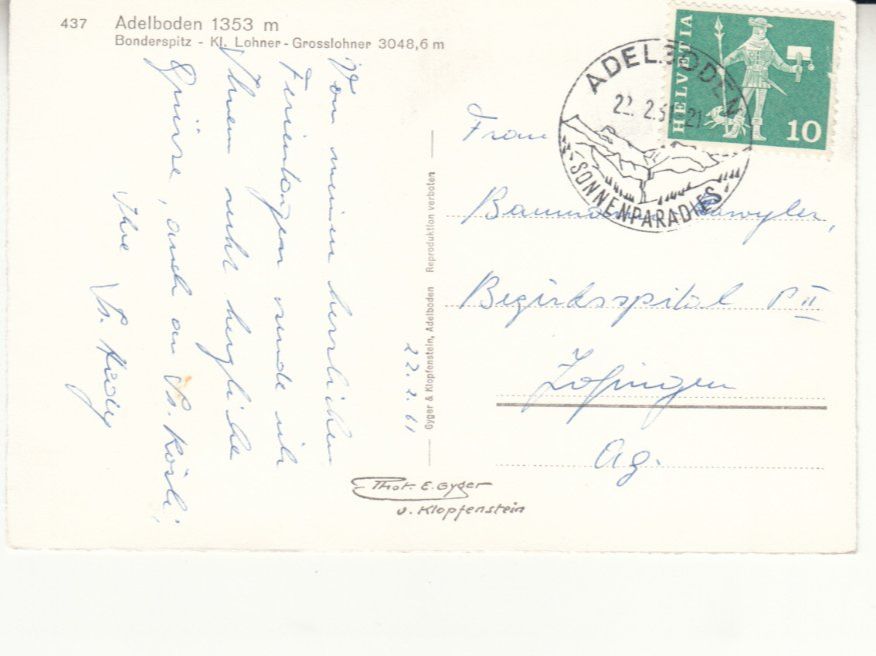 437 Adelboden 1353 m
Bonderspitz - Kl. Lohner - Grosslohner 3048,6 m
Von meinen herrlichen
Ferientagen sende ich
Ihnen recht herzliche
Grüsse, auch an Sr. Rösli,
Ihre Sr. Hedy
22.2.61
Gyger & Klopfenstein, Adelboden Reproduktion verboten
Phot. E. Gyger
u. Klopfenstein
HELVETIA
10
ADELBODEN
22.2.6
21
SONNENPARADIES
Frau
Bezirksspital P II
Zofingen
Ag.